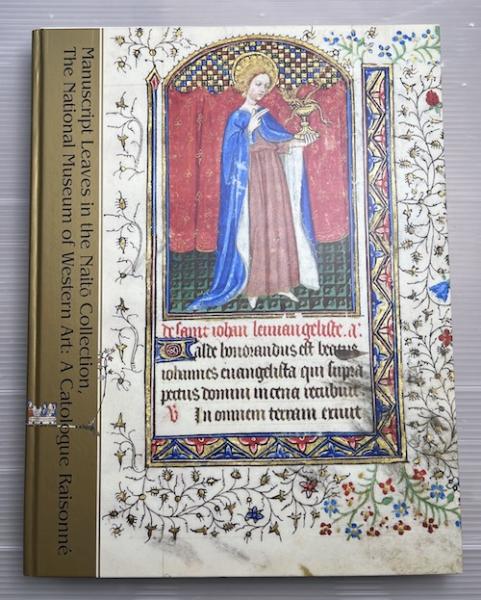 Manuscript Leaves in the Naitō Collection,
The National Museum of Western Art: A Catalogue Raisonné
de saint iohan leuuangeliste. a.
Valde honorandus est beatus
iohannes euangelista qui supra
pectus domini in cena recubuit.
V In omnem terram exiuit